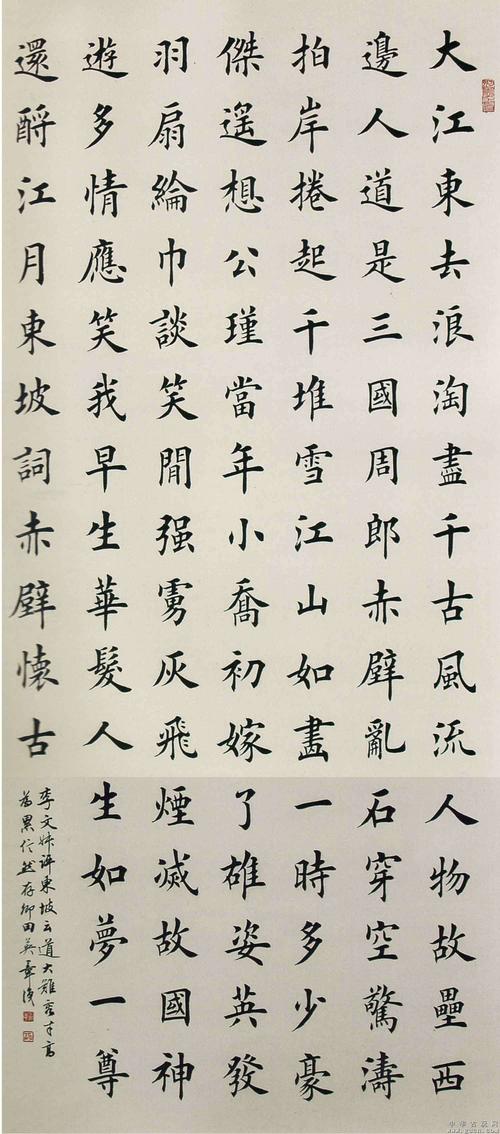 大江東去浪淘盡千古風流人物故壘西
邊人道是三國周郎赤壁亂石穿空驚濤
拍岸捲起千堆雪江山如畫一時多少豪
傑遙想公瑾當年小喬初嫁了雄姿英發
羽扇綸巾談笑間强虜灰飛煙滅故國神
遊多情應笑我早生華髮人生如夢一尊
還酹江月東坡詞赤壁懷古
李文評東坡云道大難容才高
為累信然存田英章
www.gucn.com